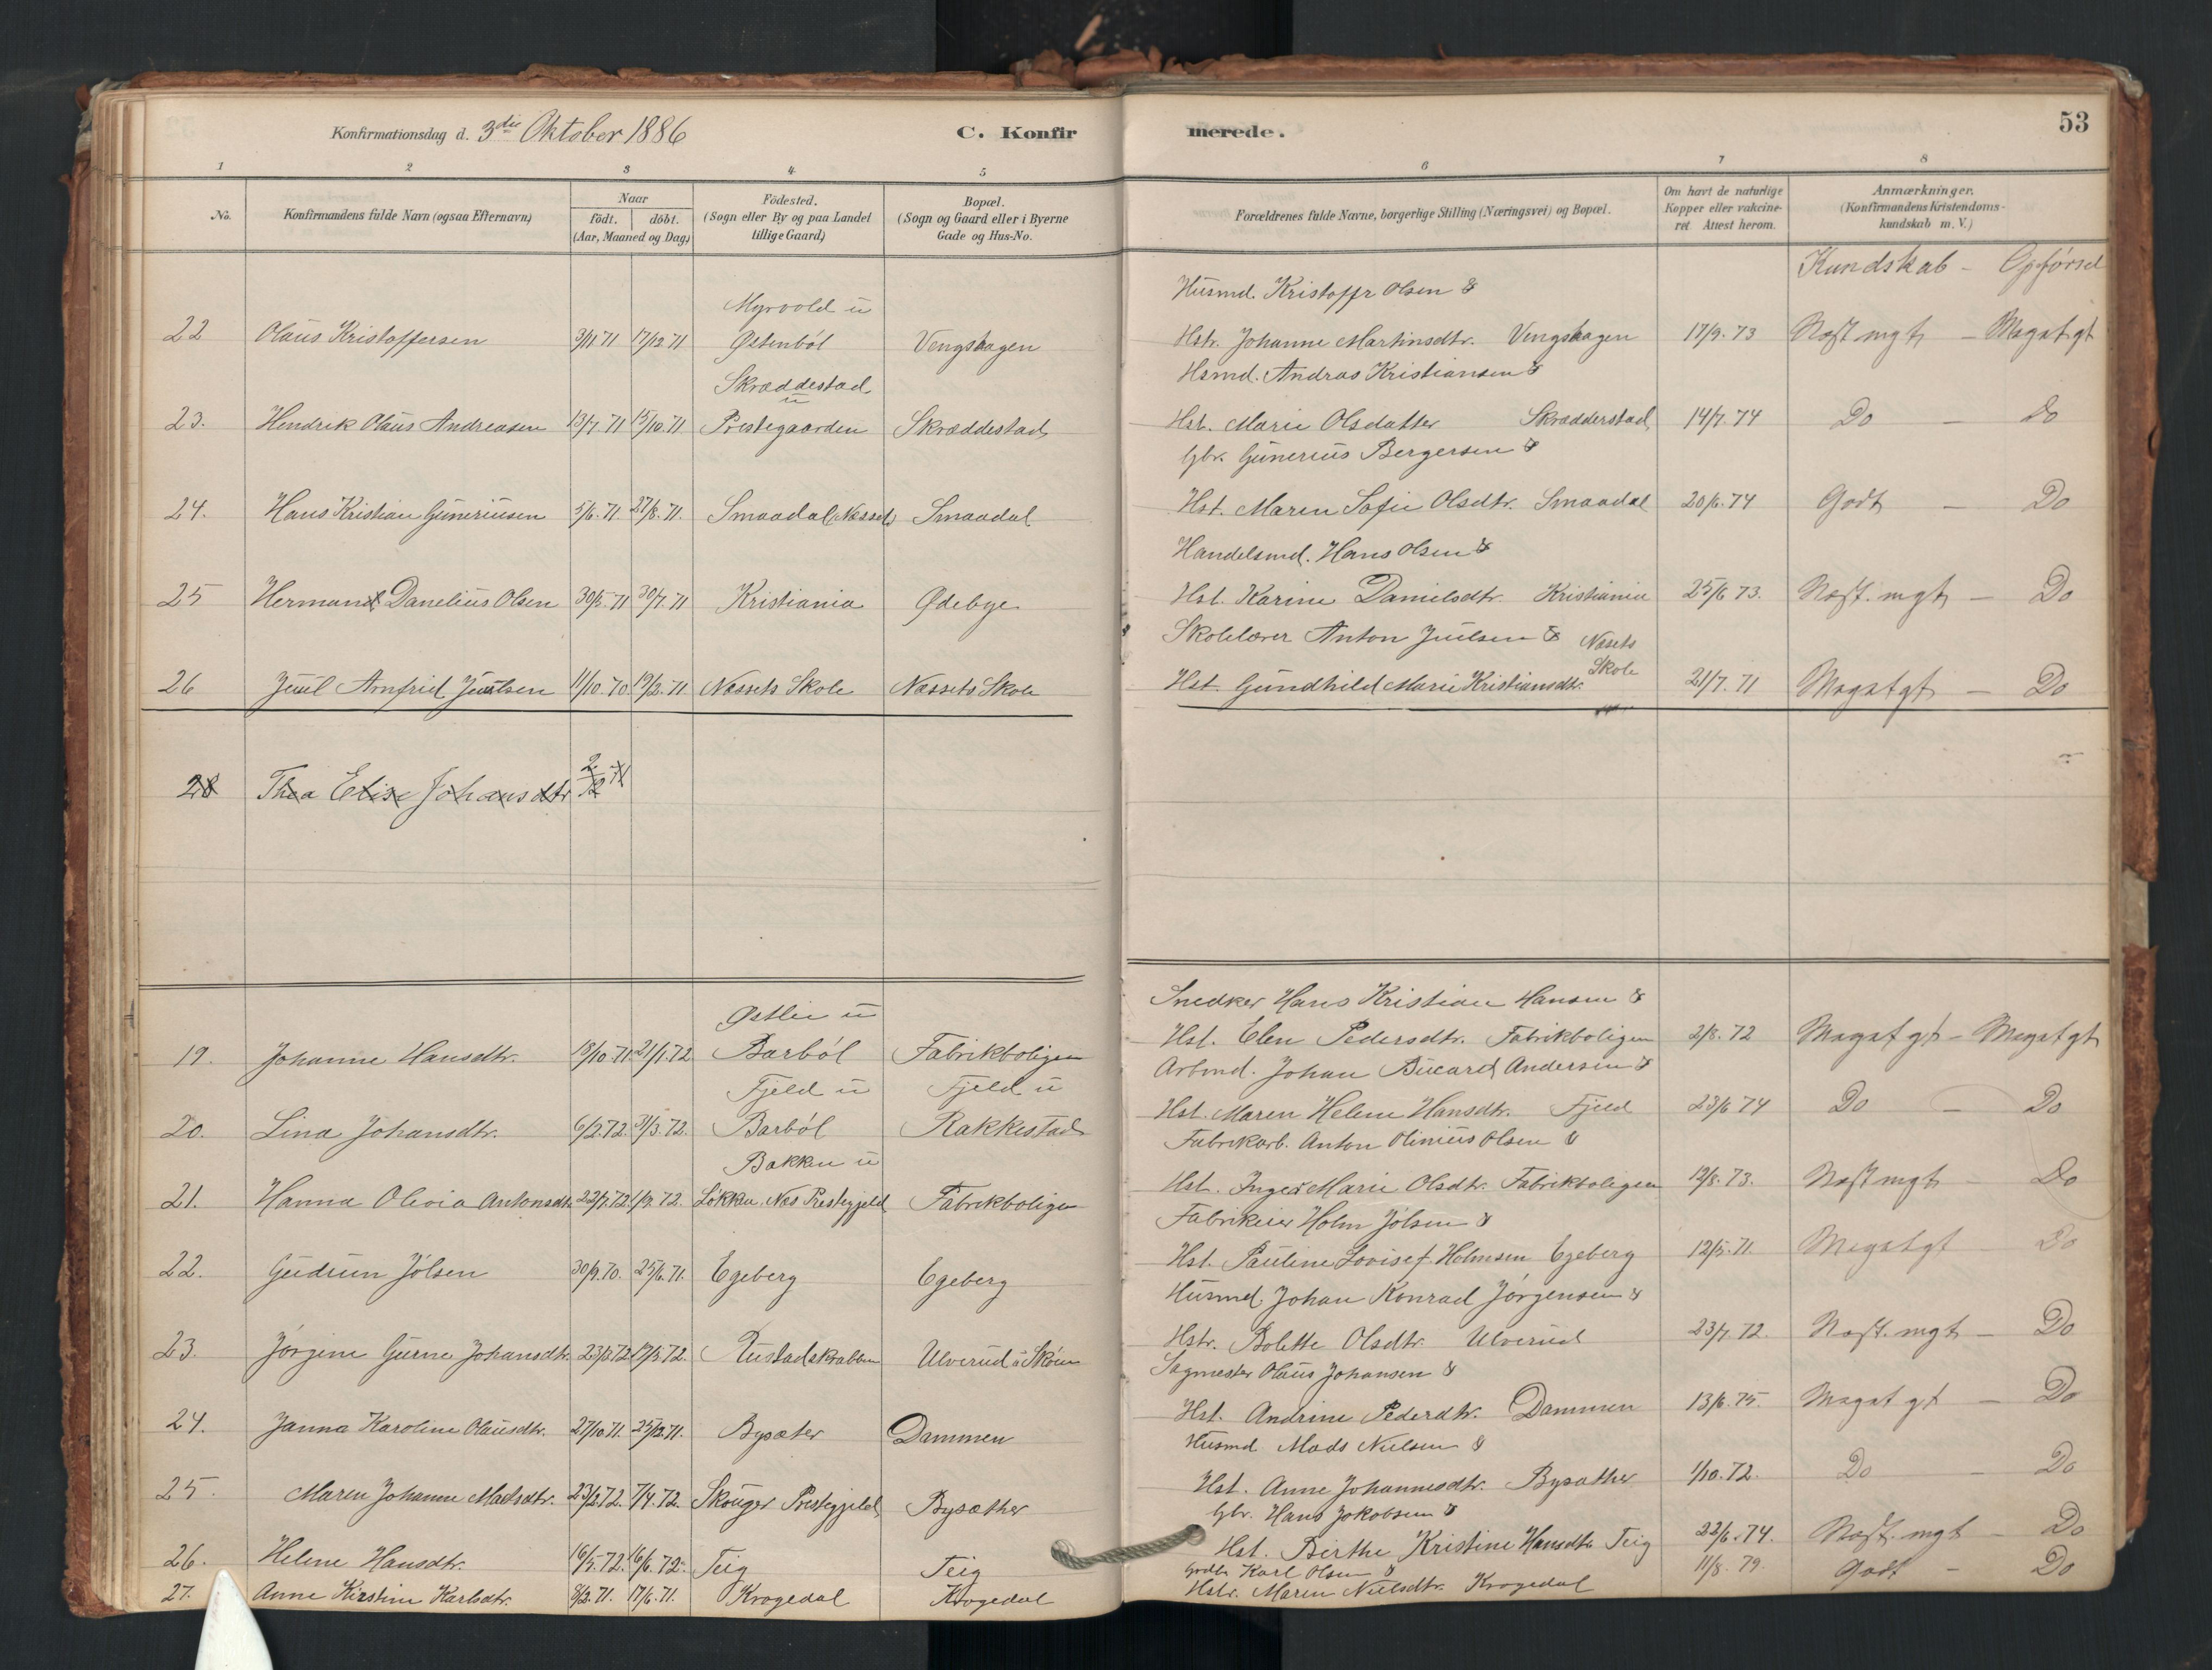 Konfirmationsdag d. 3die Oktober 1886
C. Konfir
merede.
53
1 2 3 4 5 6 7 8
No.
Konfirmandens fulde Navn (ogsaa Efternavn)
Naar
födt. döbt.
(Aar, Maaned og Dag)
Födested.
(Sogn eller By og paa Landet
tillige Gaard)
Bopæl.
(Sogn og Gaard eller i Byerne
Gade og Hus-No.
Forældrenes fulde Navne, borgerlige Stilling (Næringsvei) og Bopæl.
Om havt de naturlige
Kopper eller vakcine-
ret. Attest herom.
Anmærkninger.
(Konfirmandens Kristendoms-
kundskab m. V.)
Kundskab - Opførsel
Myrvold u
Husmd. Kristoffr Olsen &
22 Olaus Kristoffersen 3/11 71 17/12 71 Østenböl Vengshagen Hstr. Johanne Martinsdtr. Vengshagen 17/9. 73 Næst mgt - Megatgt
Skræddestad
u
Hsmd. Andras Kristiansen &
23. Hendrik Olaus Andreasen 13/7. 71 15/10. 71 Prestegaarden Skræddestad Hst. Marie Olsdatter Skrædderstad 14/7. 74 Do - Do
Gbr. Gunerius Bergersen &
24. Hans Kristian Guneriusen 5/6. 71. 27/8. 71. Smaadal (Næsset) Smaadal Hst. Maren Sofie Olsdtr. Smaadal 20/6. 74 Godt - Do
Handelsmd. Hans Olsen &
25 Herman Danelius Olsen 30/5. 71 30/7. 71 Kristiania Ødebye Hst. Karine Danielsdtr. Kristiania 25/6 73. Næst. mgt - Do
Skolelærer Anton Juulsen & Næsets
Skole
26 Juul Arnfrid Juulsen 11/10. 70 19/2. 71 Næssets Skole Næssets Skole Hst. Gundhild Marie Kristiansdtr. 21/7. 71 Megatgt - Do
28 Thea Elise Johansdtr 2/12 71
Østlie u
Snedker Hans Kristian Hansen &
19. Johanne Hansdtr. 18/10. 71. 21/1. 72 Barböl Fabrikboligen Hst. Elen Pedersdtr. Fabrikboligen 2/8. 72 Megatgt - Megatgt
Fjeld u Fjeld u Arbmd. Johan Bucard Andersen &
20. Lina Johansdtr. 6/2. 72. 31/3. 72. Barböl Rakkestad Hst. Maren Helene Hansdtr. Fjeld 23/6 74 Do - Do
Bakken u Fabrikarb. Anton Olinius Olsen &
21. Hanna Olevia Antonsdtr Løkka, Næs Prestegjeld Fabrikboligen Hst. Inger Marie Olsdtr. Fabrikboligen 12/8. 73. Næst mgt - Do
Fabrikeier Holm Jølsen &
22. Gudrun Jølsen 30/9. 70. 25/6. 71. Egeberg Egeberg Hst. Pauline Lovise f. Holmsen Egeberg 12/5. 71. Megatgt Do
Husmd. Johan Konrad Jørgensen &
23. Jørgine Gurine Johansdtr. Rustadskrabben Ulverud u Skøien Hstr. Bolette Olsdtr. Ulverud 23/7. 72. Næst. mgt - Do
Sagmester Olaus Johansen &
24. Janna Karoline Olausdtr. 27/10. 71. 25/12. 71. Bysæter Dammen Hst. Andrine Pederdtr. Dammen 13/6. 75. Megatgt - Do
Husmd. Mads Nielsen &
25. Maren Johanne Madsdtr. 23/2. 72. 7/4. 72. Skouger Prestegjeld Bysæther Hst. Anne Johannesdtr. Bysæther 1/10. 72. Do - Do
Gbr. Hans Jakobsen &
26. Helene Hansdtr. 16/5. 72. 16/6. 72. Teig Teig Hst. Birthe Kristine Hansdtr. Teig 22/6. 74. Næst. mgt - Do
Karl Olsen &
27. Anne Kirstine Karlsdtr. 8/2. 71. 17/6. 71. Krogedal Krogedal Hstr. Maren Nielsdtr. Krogedal 11/8. 79. Godt - Do